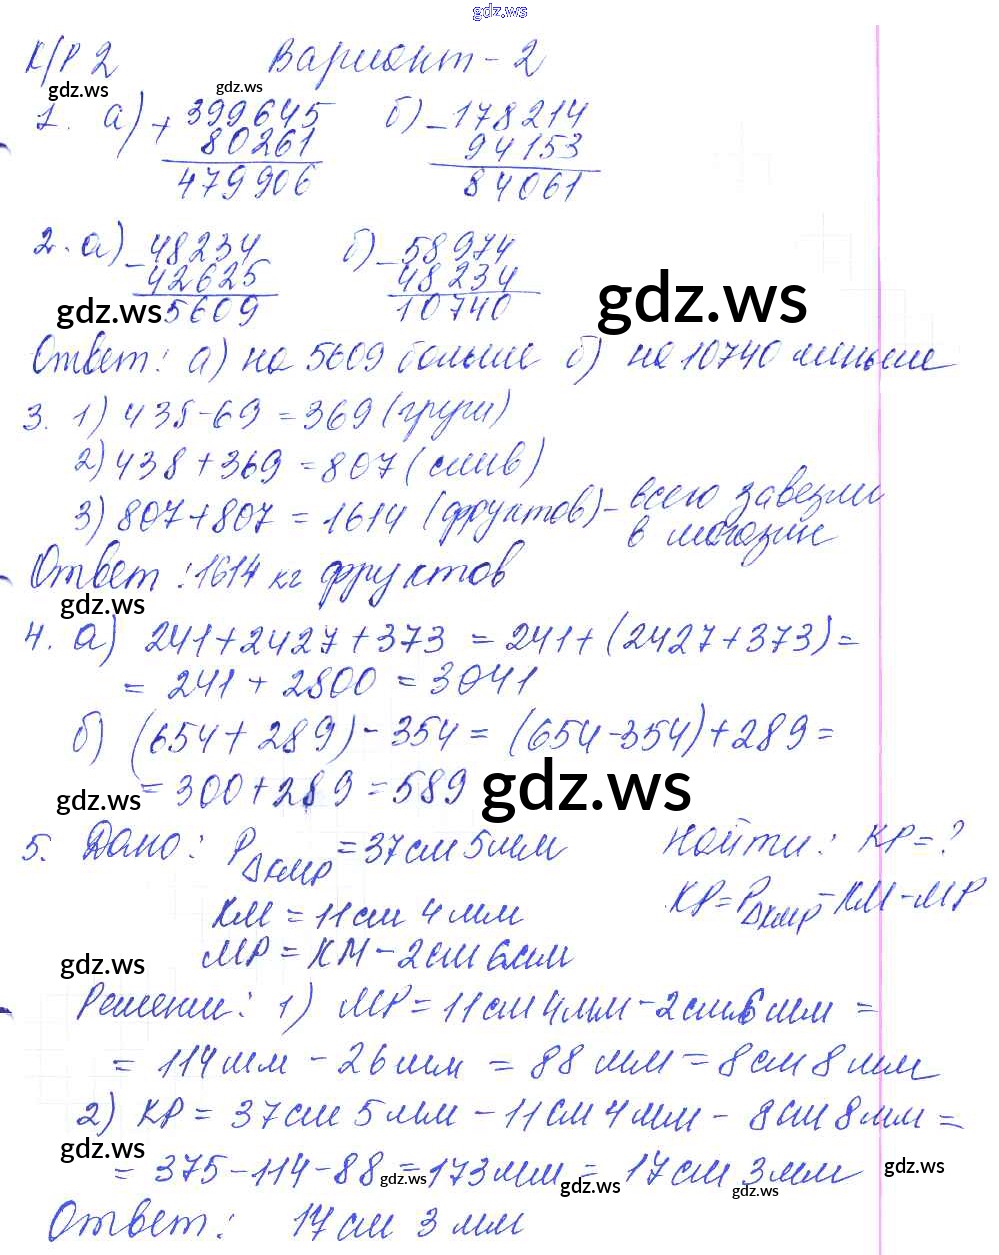 gdz.ws
К/Р 2 Вариант - 2
gdz.ws gdz.ws
1. а) + 399645 б) - 178214
80261 94153
479906 84061
2. а) - 48234 б) - 58974
42625 48234
gdz.ws 5609 10740 gdz.ws
Ответ: а) на 5609 больше б) на 10740 меньше
3. 1) 438-69 = 369 (груши)
2) 438 + 369 = 807 (слив)
3) 807+807 = 1614 (фруктов) - всего завезли
в магазин
Ответ: 1614 кг фруктов
gdz.ws
4. а) 241+2427+373 = 241+(2427+373) =
= 241 + 2800 = 3041
б) (654 + 289) - 354 = (654-354)+289 =
gdz.ws = 300+289 = 589 gdz.ws
5. Дано: P△KMP = 37см 5мм Найти: KP = ?
KM = 11см 4мм KP = P△KMP - KM - MP
gdz.ws MP = KM - 2см 6мм
Решении: 1) MP = 11см 4мм - 2см 6мм =
= 114мм - 26мм = 88 мм = 8см 8мм
2) KP = 37см 5мм - 11см 4мм - 8см 8мм =
gdz.ws
= 375-114-88 = 173мм = 17см 3мм
gdz.ws gdz.ws gdz.ws gdz.ws
Ответ: 17см 3мм